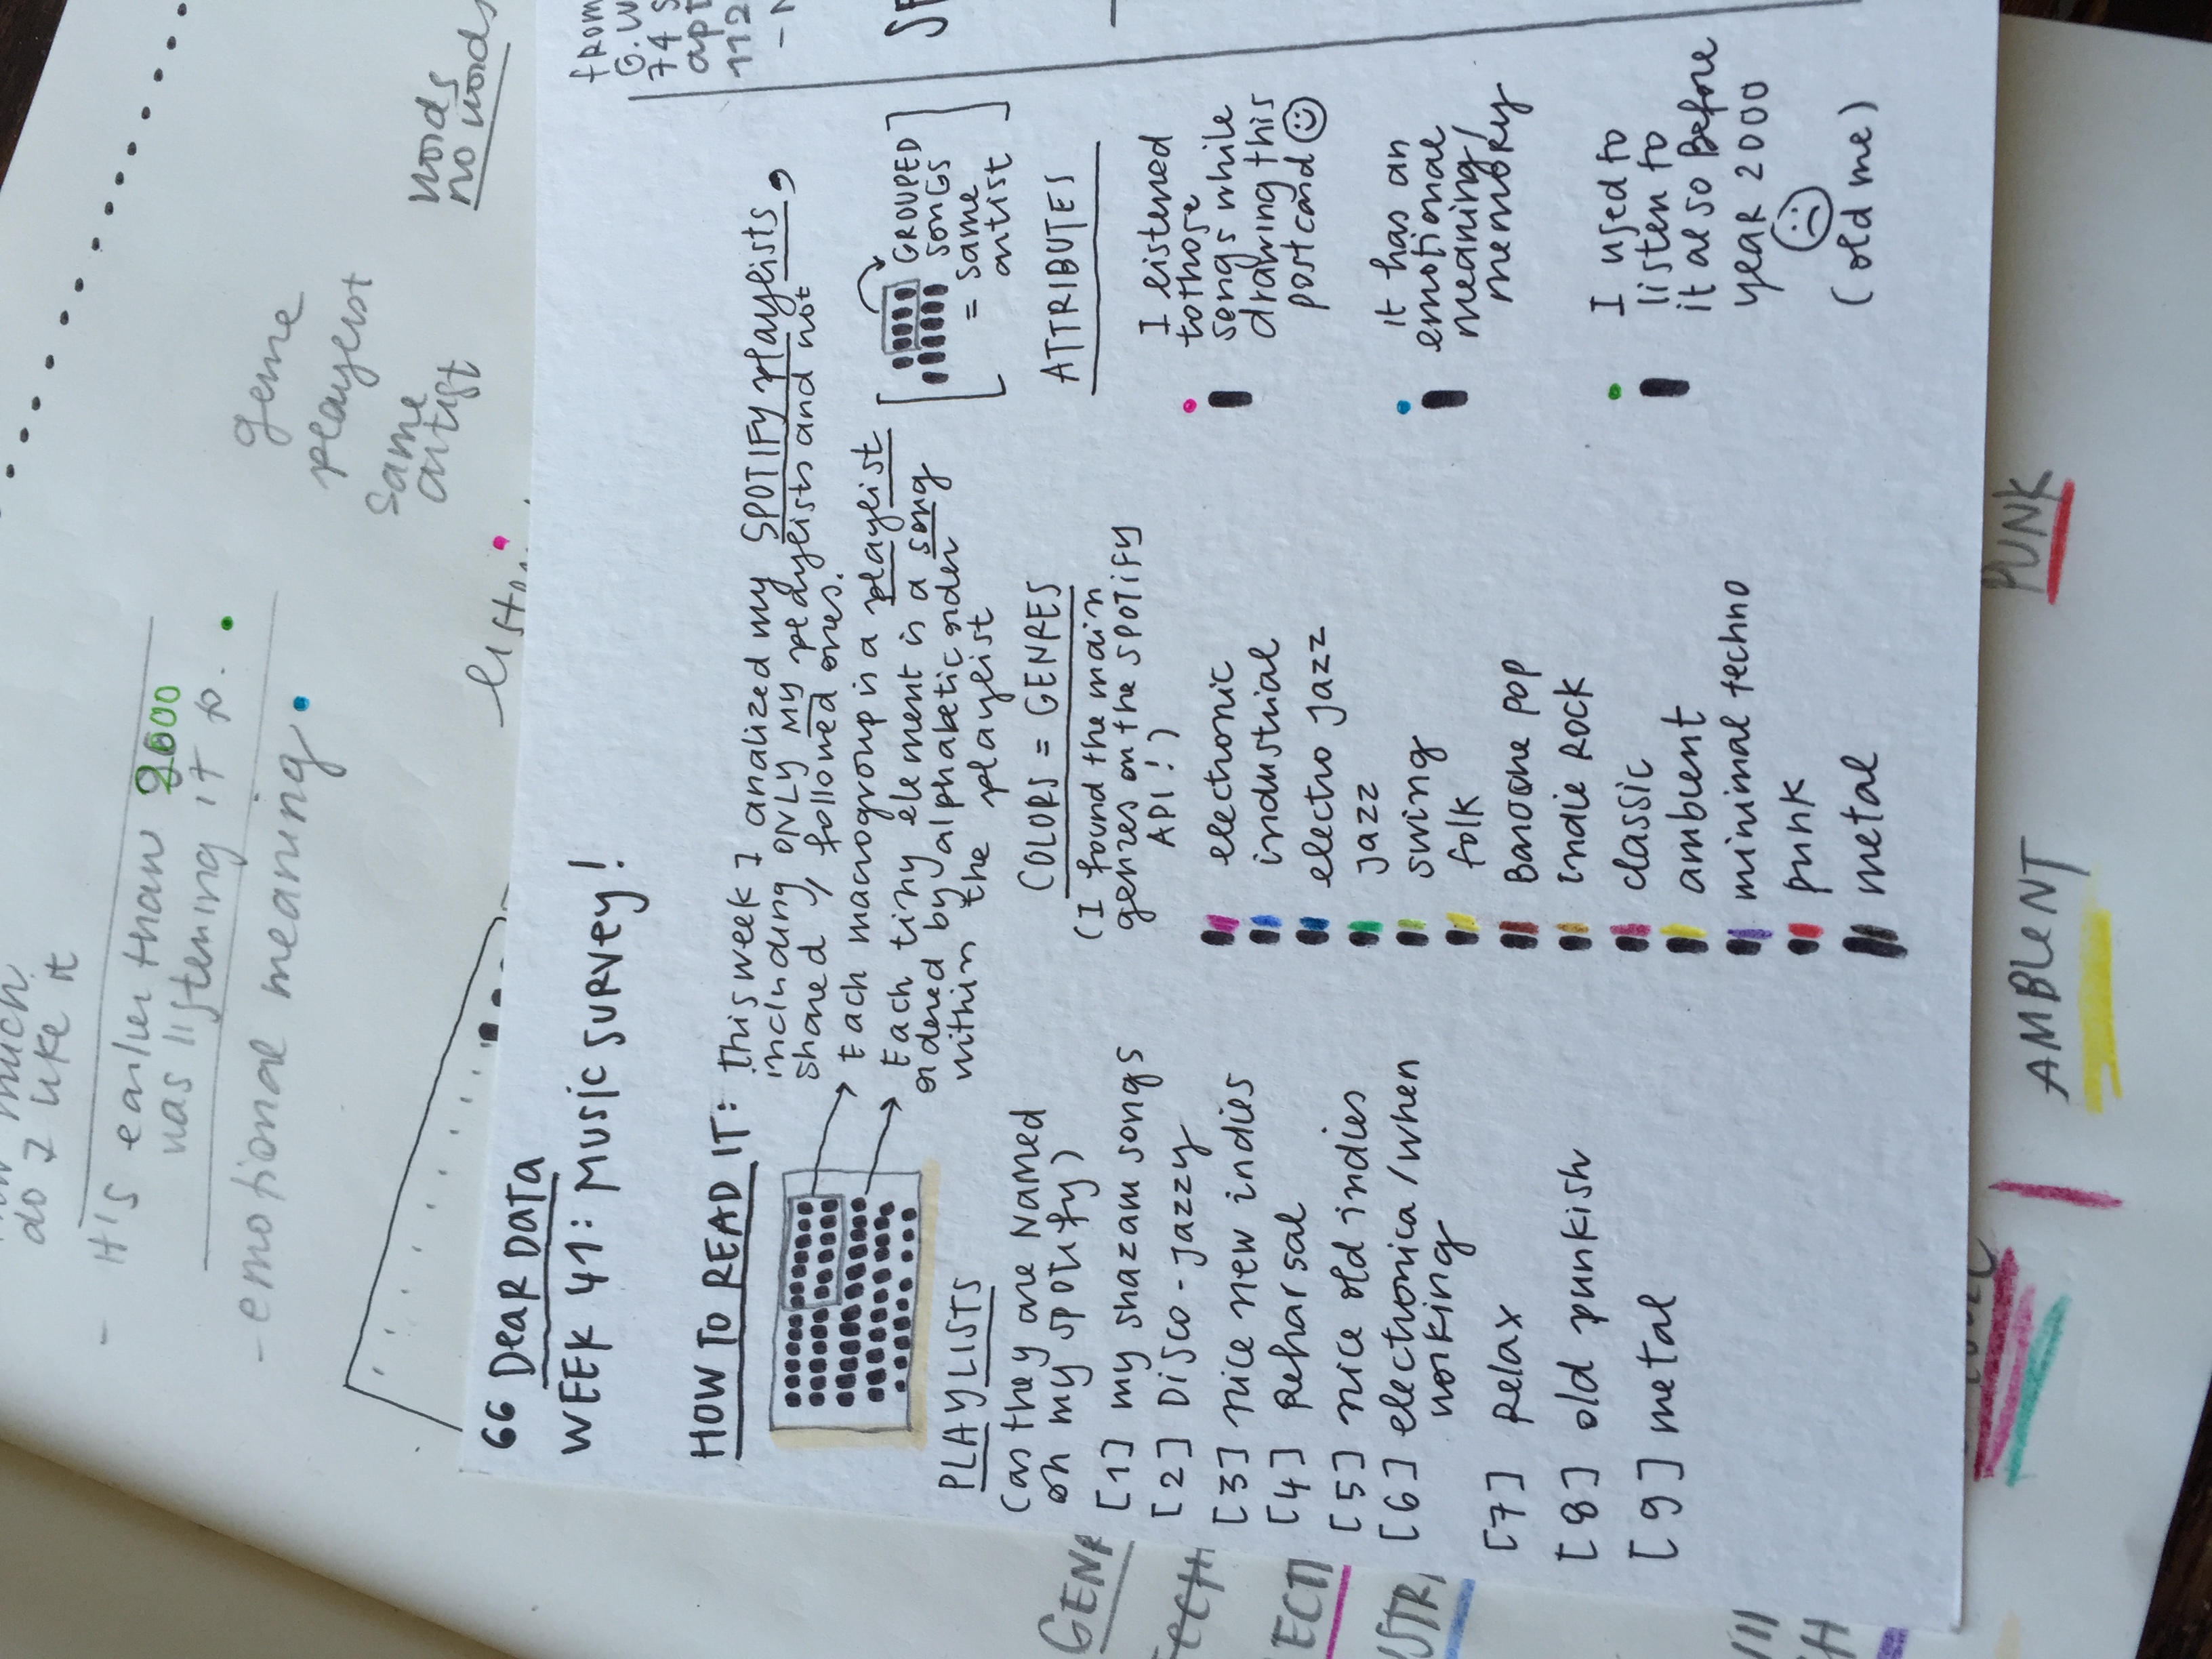 DEAR DATA
WEEK 41: MUSIC SURVEY!
HOW TO READ IT:
This week I analized my SPOTIFY playlists,
including ONLY MY playlists and not
shared / followed ones.
Each macrogroup is a playlist
Each tiny element is a song
ordered by alphabetic order
within the playlist
[GROUPED]
SONGS
= same
artist
PLAYLISTS
(as they are named
on my spotify)
[1] my shazam songs
[2] Disco-Jazzy
[3] nice new indies
[4] Reharsal
[5] nice old indies
[6] electronica / when
working
[7] Relax
[8] old punkish
[9] metal
COLORS = GENRES
(I found the main
genres on the SPOTIFY
API!)
electronic
industrial
electro jazz
jazz
swing
folk
Baroone pop
indie Rock
classic
ambient
minimal techno
punk
metal
ATTRIBUTES
I listened
to those
songs while
drawing this
postcard
it has an
emotional
meaning/
memory
I used to
listen to
it also Before
year 2000
(old me)
from
74
apt
112
do I like it
- It's earlier than 2000
was listening it to.
- emotional meaning.
genre
playlist
same
artist
words
no words
GENR
ECTI
USTRI
AMBIENT
PUNK